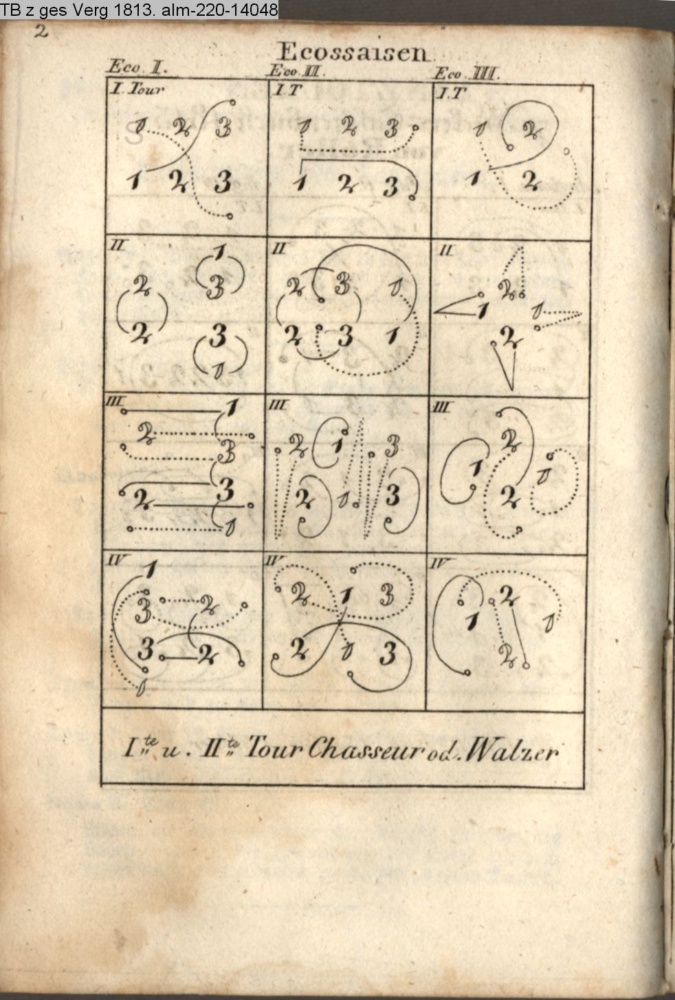 TB z ges Verg 1813. alm-220-14048
2
Ecossaisen
Eco. I. Eco II. Eco III.
I. Tour I.T I.T
1 2 3 1 2 3 1 2
1 2 3 1 2 3 1 2
II II II
1
2 3 2 3 1 2
1 1
2 3 2 3 1 2
1
III III III
1
2 2 1 3 2
3 1 1
3
2 2 1 3 2
1
IV IV IV
1
3 2 2 1 3 2
1 1
3 2 2 1 3 2
1
Ite u. IIte Tour Chasseur od. Walzer